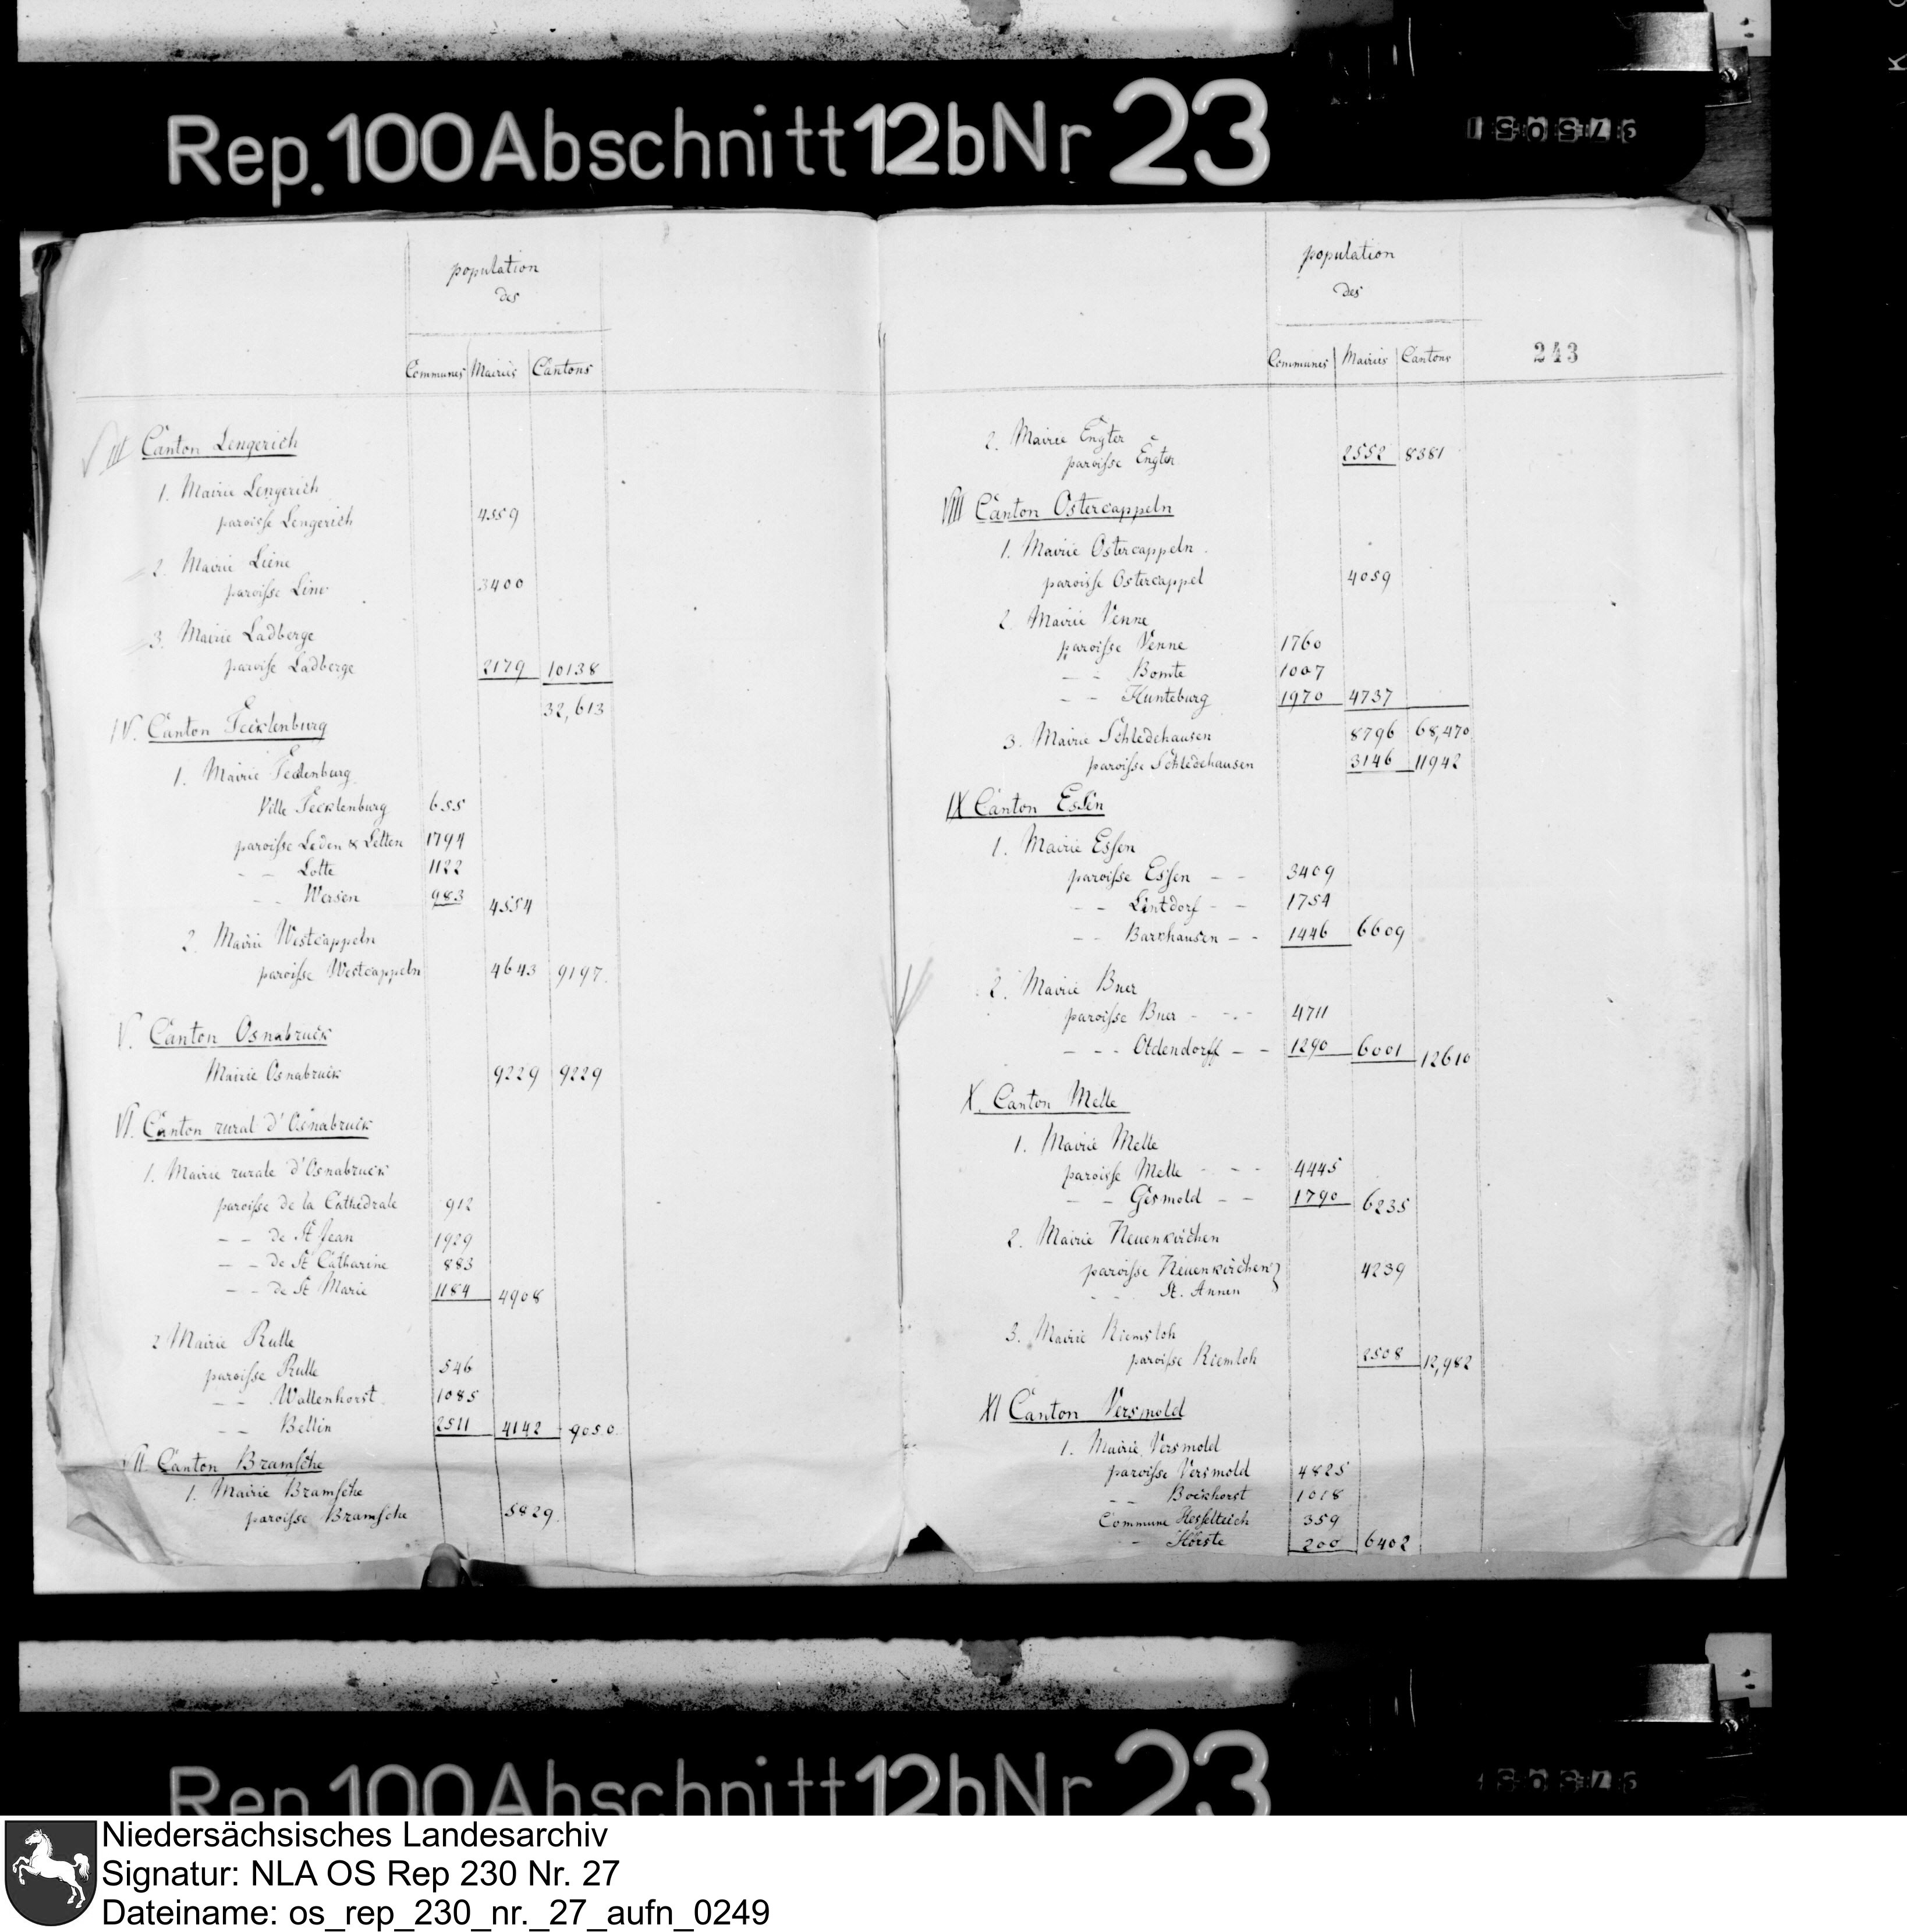 Rep. 100 Abschnitt 12b Nr 23
population
des
Communes Mairies Cantons
III Canton Lengerich
1. Mairie Lengerich
paroisse Lengerich 4559
2. Mairie Liene
paroisse Line 3400
3. Mairie Ladberge
paroisse Ladberge 2179 10138
32,613
IV. Canton Tecklenburg
1. Mairie Tecklenburg
Ville Tecklenburg 655
paroisse Leden & Letten 1794
- - Lotte 1122
- - Wersen 983 4554
2. Mairie Westcappeln
paroisse Westcappeln 4643 9197.
V. Canton Osnabruck
Mairie Osnabruck 9229 9229
VI. Canton rural d'Osnabruck
1. Mairie rurale d'Osnabruck
paroisse de la Cathedrale 912
- - de St Jean 1929
- - de St Catharine 883
- - de St Marie 1184 4908
2 Mairie Rulle
paroisse Rulle 546
- - Wallenhorst 1085
- - Bellin 2511 4142 9050.
VII. Canton Bramsche
1. Mairie Bramsche
paroisse Bramsche 5829.
population
des
Communes Mairies Cantons
243
2. Mairie Engter
paroisse Engter 2552 8381
VIII Canton Ostercappeln
1. Mairie Ostercappeln.
paroisse Ostercappel 4059
2. Mairie Venne
paroisse Venne 1760
- - Bomte 1007
- - Hunteburg 1970 4737
3. Mairie Schledehausen 8796 68,470
paroisse Schledehausen 3146 11942
IX Canton Essen
1. Mairie Essen
paroisse Essen - - 3409
- - Lintdorf - - 1754
- - Barkhausen - - 1446 6609
2. Mairie Buer
paroisse Buer - - - 4711
- - - Oldendorff - - 1290 6001 12610
X. Canton Melle
1. Mairie Melle
paroisse Melle - - - 4445
- - Gesmold - - 1790 6235
2. Mairie Neuenkirchen
paroisse Neuenkirchen } 4239
- - St. Annen
3. Mairie Riemsloh
paroisse Riemsloh 2508 12,982
XI Canton Versmold
1. Mairie Versmold
paroisse Versmold 4825
- - Bockhorst 1018
Commune Hesselteich 359
- - Hörste 200 6402
Rep. 100 Abschnitt 12b Nr 23
Niedersächsisches Landesarchiv
Signatur: NLA OS Rep 230 Nr. 27
Dateiname: os_rep_230_nr._27_aufn_0249